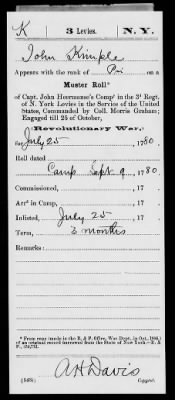 K 3 Levies. N.Y.
John Kimple
Appears with the rank of Pri on a
Muster Roll*
of Capt. John Heermanse's Comp' in the 3ᵈ Regt.
of N. York Levies in the Service of the United
States, Commanded by Coll. Morris Graham;
Engaged till 25 of October,
Revolutionary War,
for July 25, 1780.
Roll dated
Camp Sept. 9, 1780
Commissioned, , 17 .
Arrᵈ in Camp, , 17 .
Inlisted, July 25, 17 .
Term, 3 months
Remarks:
*From rolls made in the R. & P. Office, War Dept.
of an original record borrowed from the State of New York—R. &
A H Davis
Copyist.